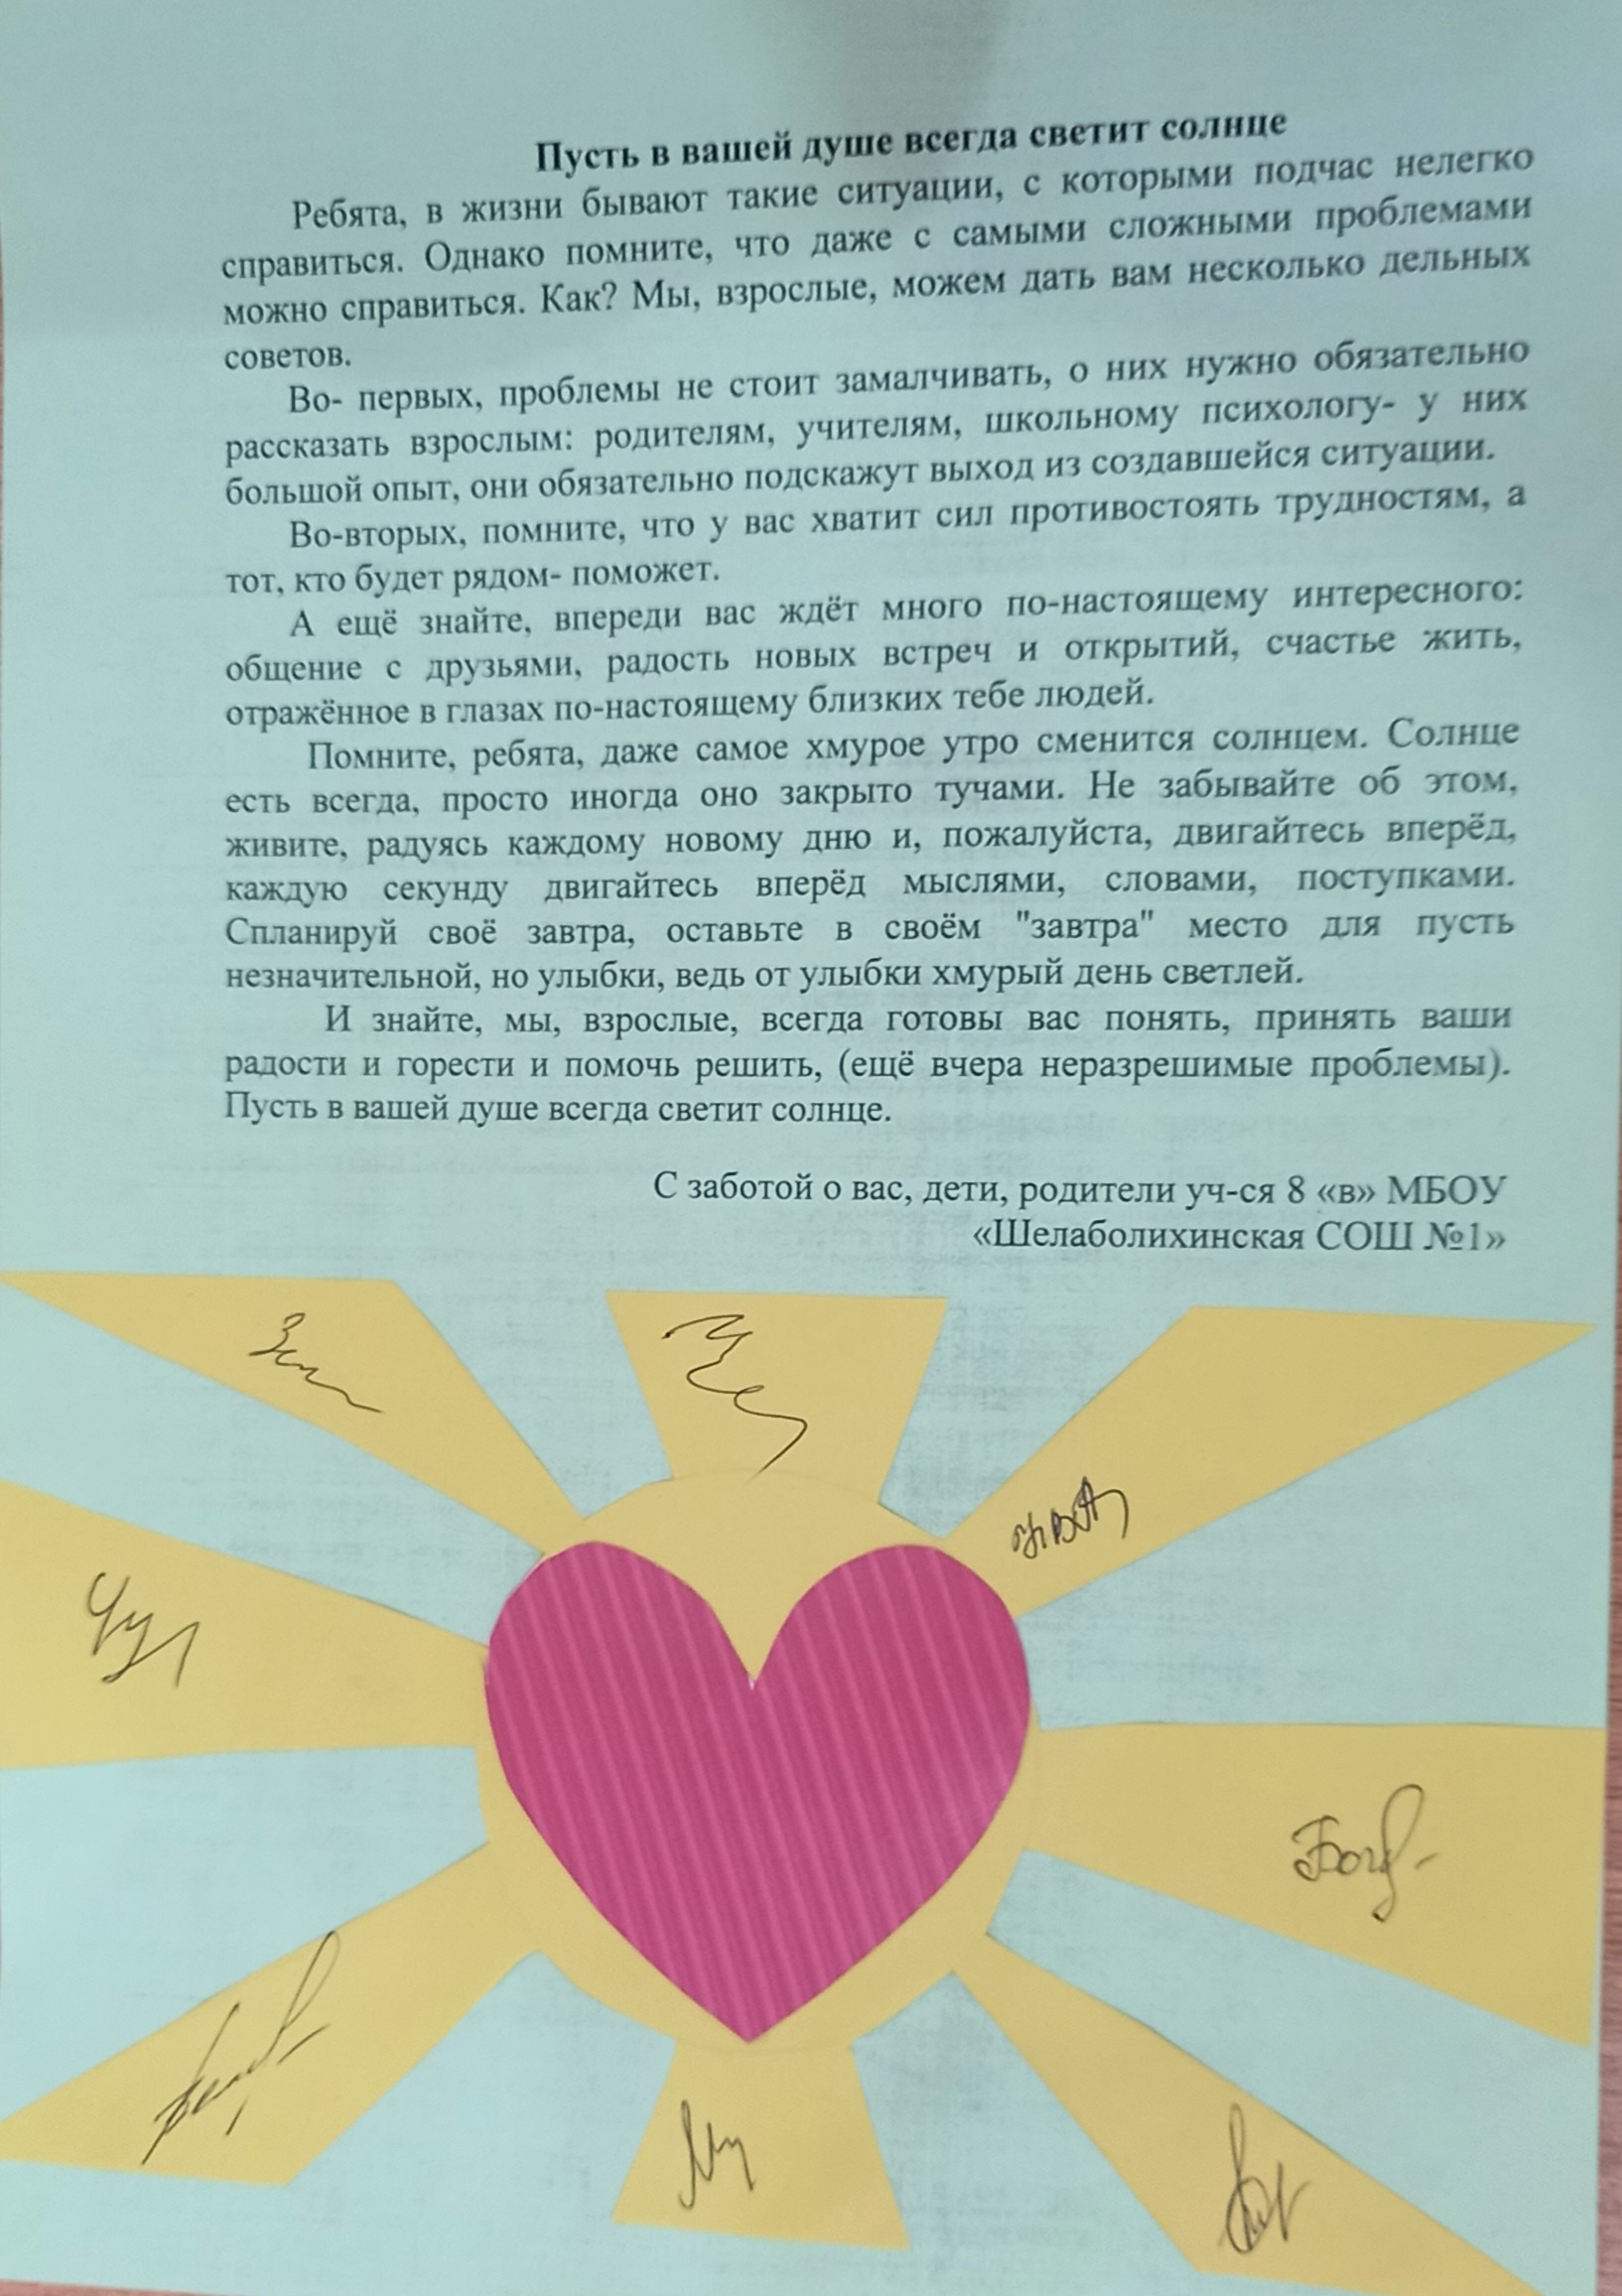 Пусть в вашей душе всегда светит солнце
Ребята, в жизни бывают такие ситуации, с которыми подчас нелегко
справиться. Однако помните, что даже с самыми сложными проблемами
можно справиться. Как? Мы, взрослые, можем дать вам несколько дельных
советов.
Во- первых, проблемы не стоит замалчивать, о них нужно обязательно
рассказать взрослым: родителям, учителям, школьному психологу- у них
большой опыт, они обязательно подскажут выход из создавшейся ситуации.
Во-вторых, помните, что у вас хватит сил противостоять трудностям, а
тот, кто будет рядом- поможет.
А ещё знайте, впереди вас ждёт много по-настоящему интересного:
общение с друзьями, радость новых встреч и открытий, счастье жить,
отражённое в глазах по-настоящему близких тебе людей.
Помните, ребята, даже самое хмурое утро сменится солнцем. Солнце
есть всегда, просто иногда оно закрыто тучами. Не забывайте об этом,
живите, радуясь каждому новому дню и, пожалуйста, двигайтесь вперёд,
каждую секунду двигайтесь вперёд мыслями, словами, поступками.
Спланируй своё завтра, оставьте в своём "завтра" место для пусть
незначительной, но улыбки, ведь от улыбки хмурый день светлей.
И знайте, мы, взрослые, всегда готовы вас понять, принять ваши
радости и горести и помочь решить, (ещё вчера неразрешимые проблемы).
Пусть в вашей душе всегда светит солнце.
С заботой о вас, дети, родители уч-ся 8 «в» МБОУ
«Шелаболихинская СОШ №1»